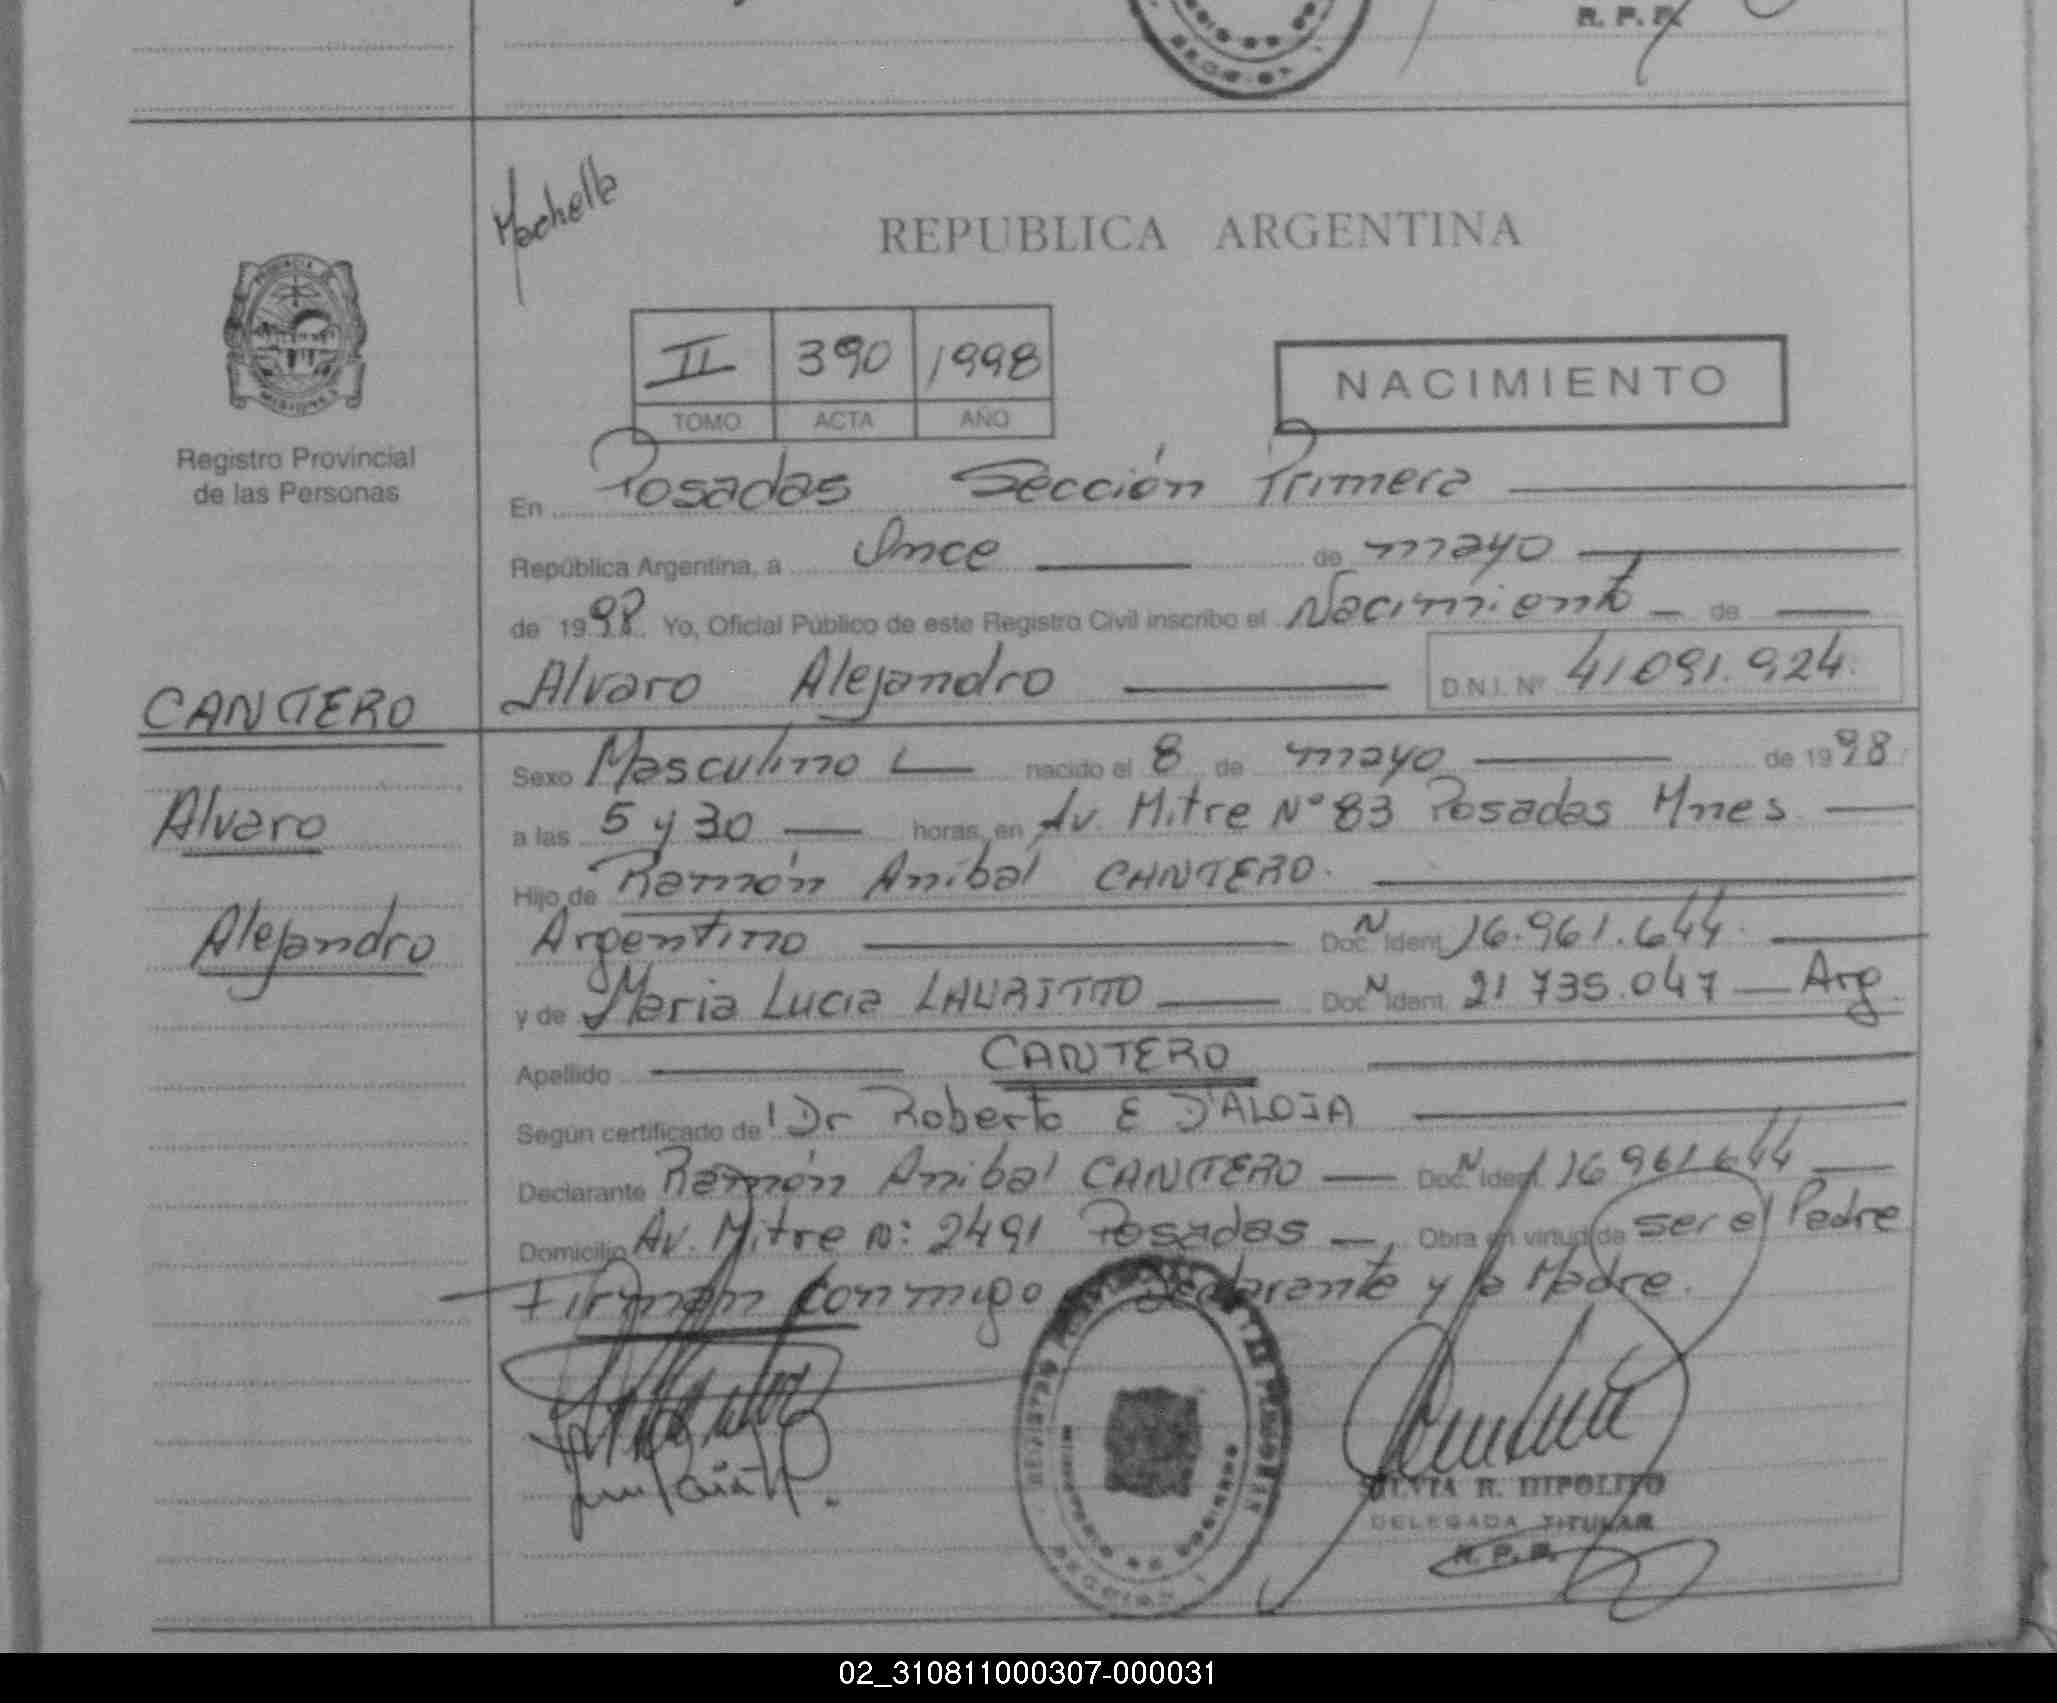 R. P. P.
Machella
REPUBLICA ARGENTINA
II 390 1998
TOMO ACTA AÑO
NACIMIENTO
Registro Provincial
de las Personas
En Posadas Sección Primera
República Argentina, a Once de mayo
de 1998. Yo, Oficial Público de este Registro Civil inscribo el Nacimiento de
Alvaro Alejandro D.N.I. Nº 41091.924.
CANTERO
Alvaro
Alejandro
Sexo Masculino nacido el 8 de mayo de 1998
a las 5 y 30 horas, en Av. Mitre Nº 83 Posadas Mnes
Hijo de Ramón Anibal CANTERO.
Argentino Doc. N Ident. 16.961.644
y de Maria Lucia LAURITTO Doc. N Ident. 21 735.047 Arg
Apellido CANTERO
Según certificado de Dr Roberto E D'ALOJA
Declarante Ramón Anibal CANTERO Doc. N Ident. 16 961 644
Domicilio Av. Mitre N: 2491 Posadas Obra en virtud de ser el Padre
Firman conmigo Declarante y la Madre.
SILVIA R. DIPOLITO
DELEGADA TITULAR
R. P. P.
02_310811000307-000031